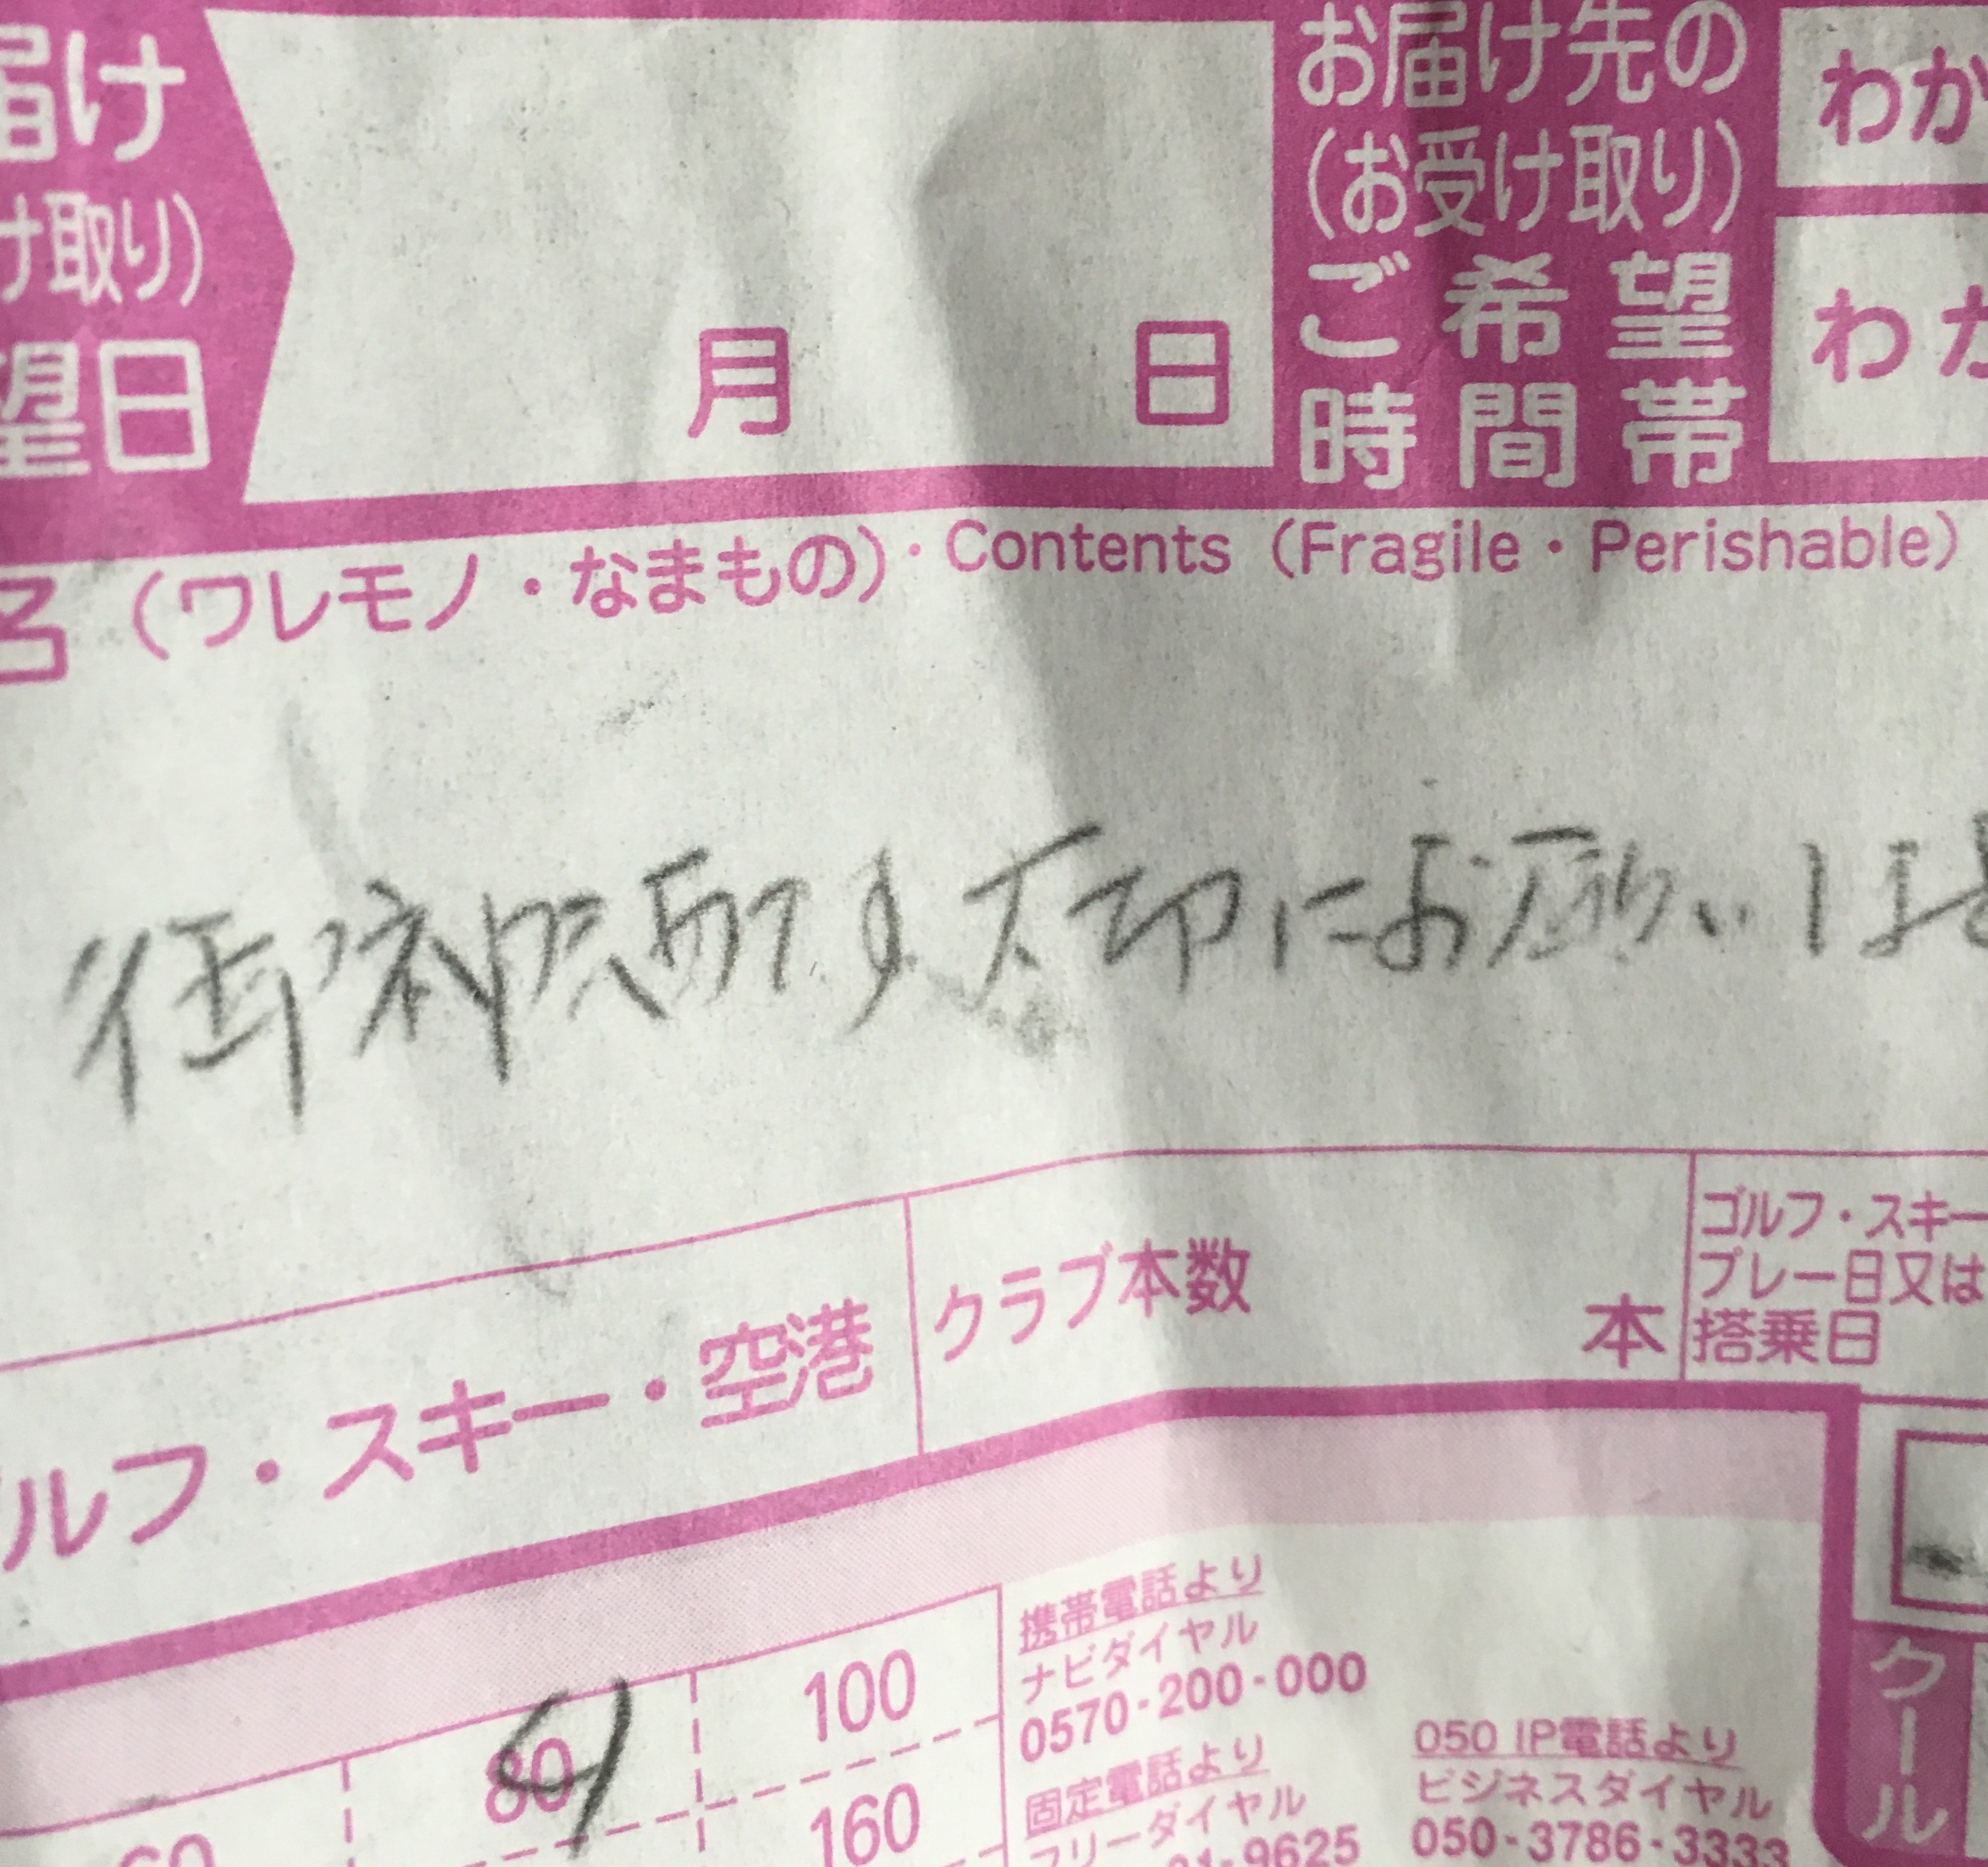 届け
お届け先の
わか
け取り)
(お受け取り)
望日
月 日
ご希望
時間帯
わか
名 (ワレモノ・なまもの)・Contents (Fragile・Perishable)
にお願い
ルフ・スキー・空港
クラブ本数
本
ゴルフ・スキー
プレー日又は
搭乗日
60
80
100
160
携帯電話より
ナビダイヤル
0570-200-000
固定電話より
フリーダイヤル
01-9625
050 IP電話より
ビジネスダイヤル
050-3786-3333
クール